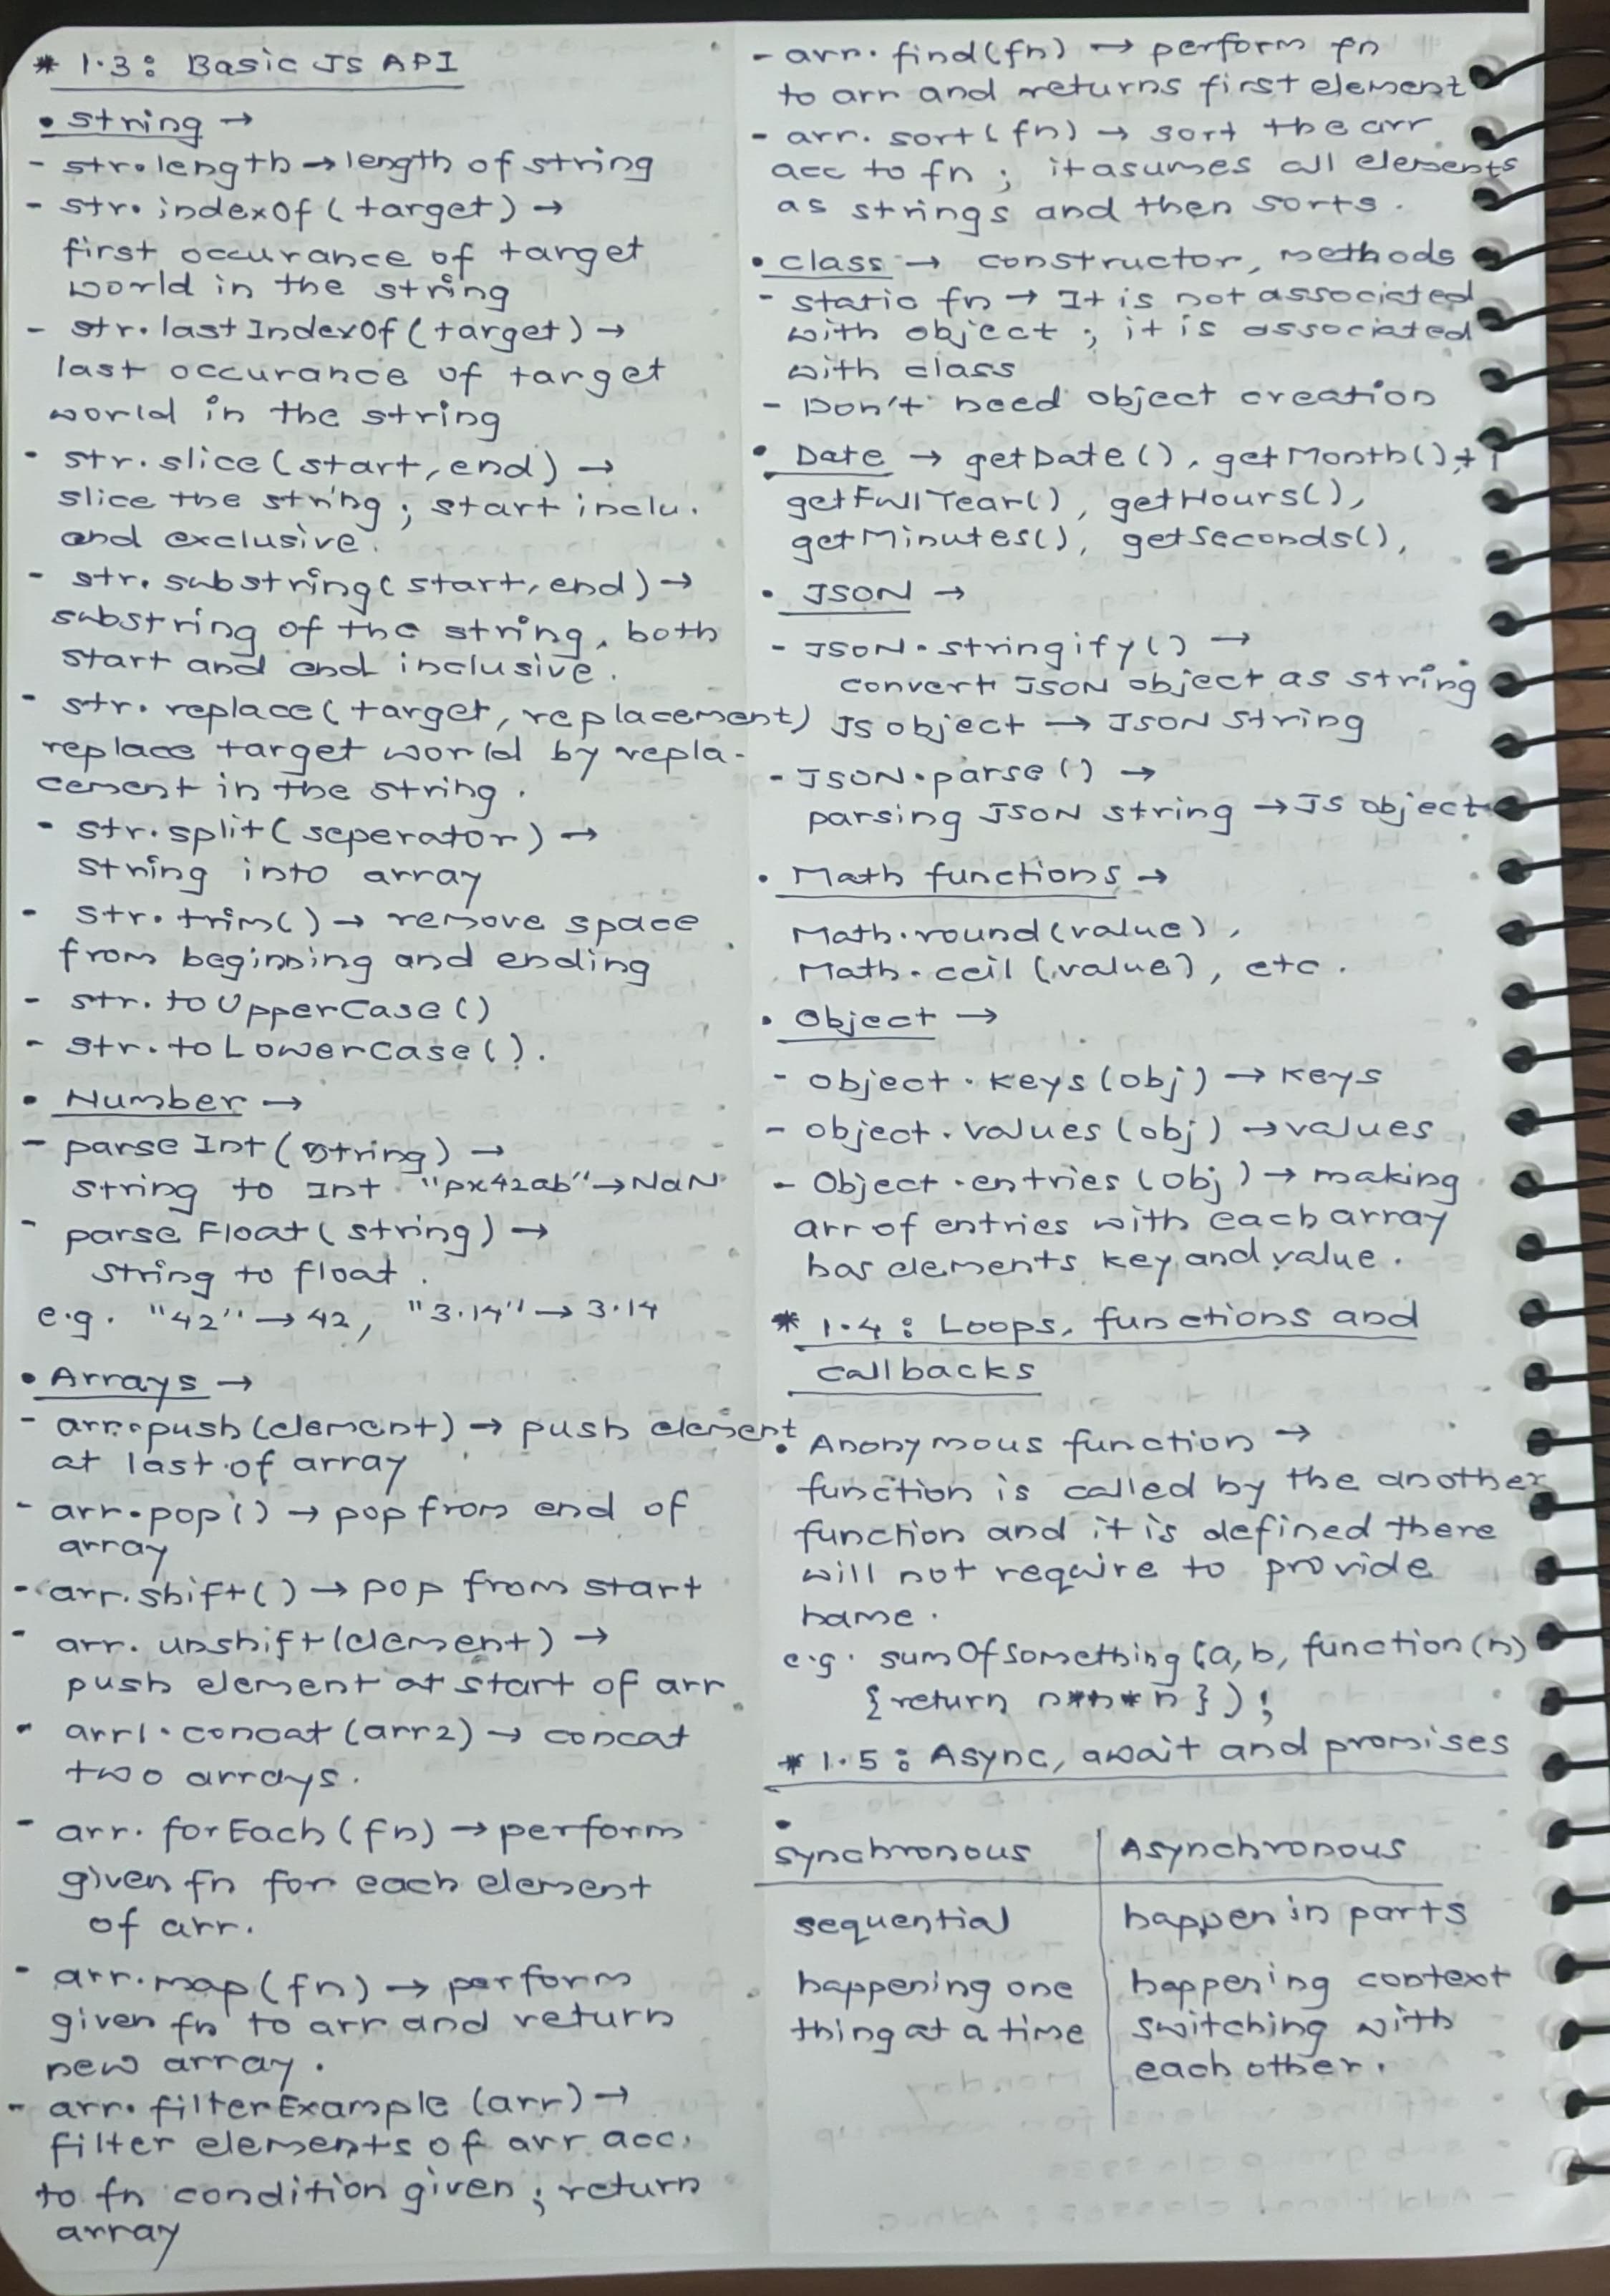 * 1.3: Basic JS API
• string →
- str.length → length of string
- str.indexOf(target) →
first occurance of target
world in the string
- str.lastIndexOf(target) →
last occurance of target
world in the string
- str.slice(start, end) →
slice the string; start inclu.
and exclusive.
- str.substring(start, end) →
substring of the string, both
start and end inclusive.
- str.replace(target, replacement)
replace target world by repla-
cement in the string.
- str.split(seperator) →
string into array
- str.trim() → remove space
from beginning and ending
- str.toUpperCase()
- str.toLowerCase().
• Number →
- parseInt(string) →
string to Int "px42ab" → NaN
- parseFloat(string) →
string to float.
e.g. "42" → 42, "3.14" → 3.14
• Arrays →
- arr.push(element) → push element
at last of array
- arr.pop() → pop from end of
array
- arr.shift() → pop from start
- arr.unshift(element) →
push element at start of arr
- arr1.concat(arr2) → concat
two arrays.
- arr.forEach(fn) → perform
given fn for each element
of arr.
- arr.map(fn) → perform
given fn to arr and return
new array.
- arr.filterExample(arr) →
filter elements of arr acc.
to fn condition given; return
array
- arr.find(fn) → perform fn
to arr and returns first element
- arr.sort(fn) → sort the arr
acc to fn; it asumes all elements
as strings and then sorts.
• class → constructor, methods
- static fn → It is not associated
with object; it is associated
with class
- Don't need object creation
• Date → getDate(), getMonth()+1
getFullYear(), getHours(),
getMinutes(), getSeconds(),
• JSON →
- JSON.stringify() →
convert JSON object as string
JS object → JSON string
- JSON.parse() →
parsing JSON string → JS object
• Math functions →
Math.round(value),
Math.ceil(value), etc.
• Object →
- object.keys(obj) → keys
- object.values(obj) → values
- Object.entries(obj) → making
arr of entries with each array
has elements key and value.
* 1.4: Loops, functions and
callbacks
• Anonymous function →
function is called by the another
function and it is defined there
will not require to provide
name.
e.g. sumOfSomething(a, b, function(n)
{return n*n*n});
* 1.5: Async, await and promises
•
synchronous | Asynchronous
sequential | happen in parts
happening one | happening context
thing at a time | switching with
each other.